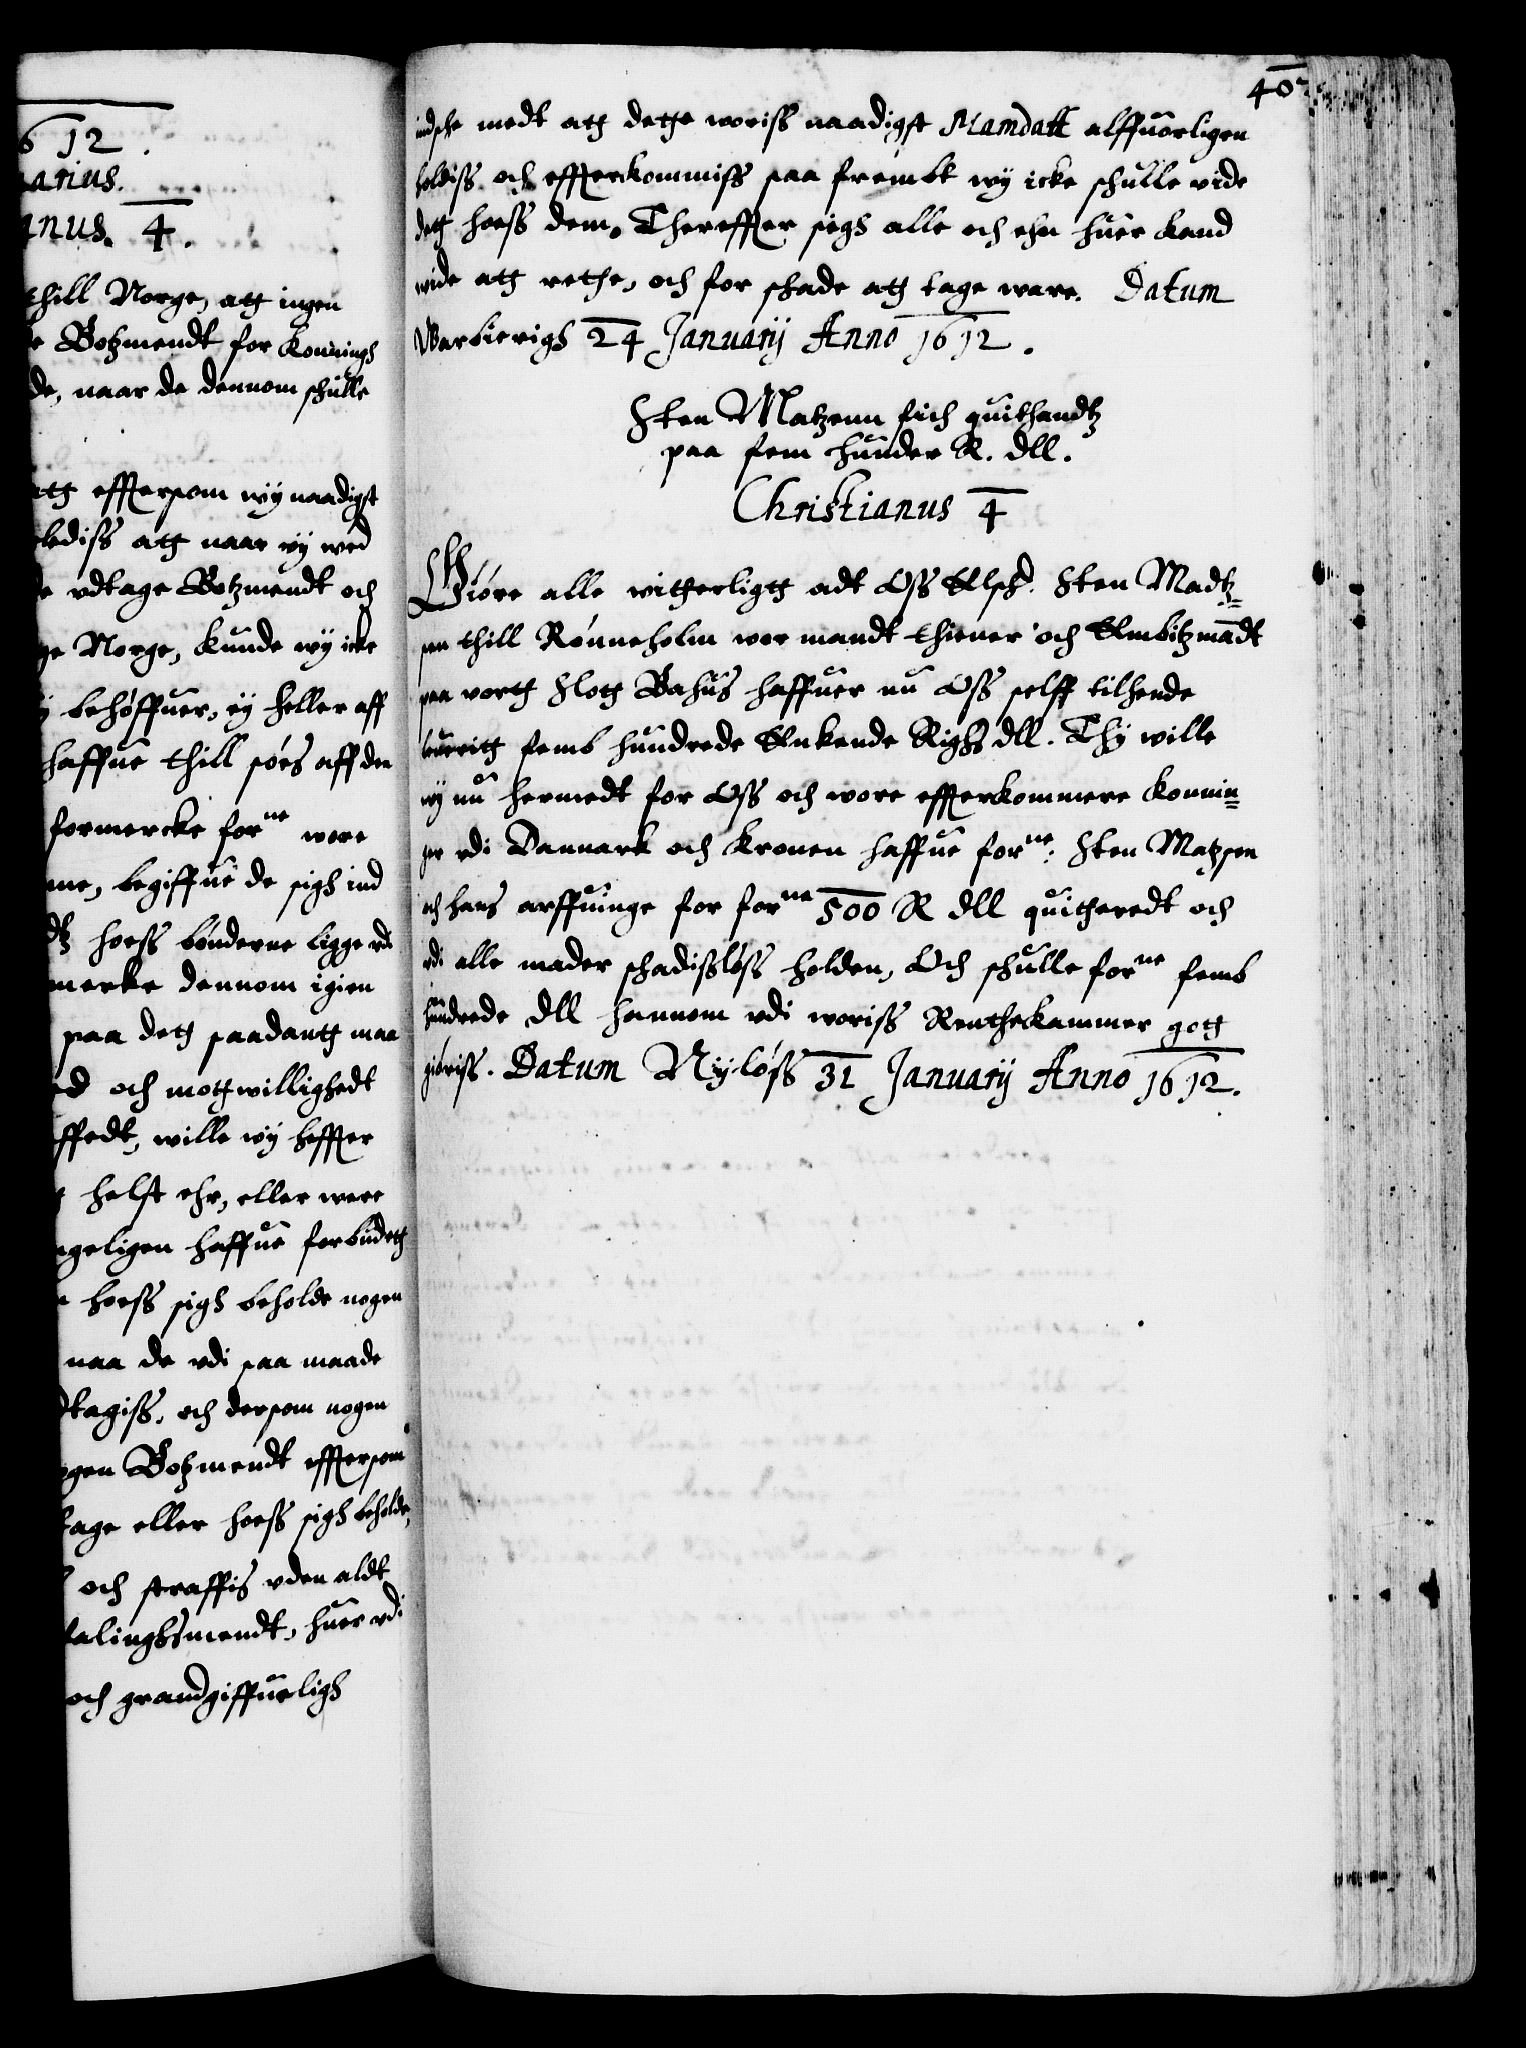 612.
arius.
anus. 4.
thill Norge, att ingen
Botzmendt for Konnings
de, naar de dennom schulle
att effthersom wy naadigst
lediss att naar wy wed
vdtage Botzmendt och
ge Norge, kunde wy icke
behøffuer, ey heller aff
haffue thill søes aff den
formercke forne wore
me, begiffue de sigh ind
hoess bønderne ligge vdi
merke dennom igien
paa dett saadantt maa
ed och mottwillighedt
ffedt, wille wy heffther
helst ehr, eller were
ngeligen haffue forbudeth
hoess sigh beholde nogen
naa de vdi saa maade
dtagiss, och dersom nogen
ogen Botzmendt effthersom
tage eller hoess sigh beholde,
och straffis vden aldt
falinghsmendt, huer vdi
och grandgiffueligh
40
indsehe medt att dethe woriss naadigst Mandatt alffuorligen
holdiss och efftherkommiss saa frembt wy icke schulle vide
dett hoess dem. Thereffther sigh alle och ehn huer kand
wide att rethe, och for schade att tage ware. Datum
Warbierigh 24 January Anno 1612.
Sten Matzenn fich quithandtz
paa fem hunder R. dll.
Christianus 4
Giøre alle witherligtt adt Oss Elsch. Sten Madtz=
sen thill Rønneholm wor mandt thiener och Embitzmandt
paa vortt Slott Bahus haffuer nu Oss self tilhende
leueritt femb hundrede Enkende Righs dll. Thj wille
wy nu hermedt for Oss och wore efftherkommere Konnin=
ger vdi Danmark och Kronen haffue forne: Sten Matzsen
och hans arffuinge for forne 500 R dll quitheredt och
vdi alle mader schadissløss holden, Och schulle forne femb
hundrede dll hannom vdi woriss Renthekammer gott
giøriss. Datum Nyløss 31 January Anno 1612.